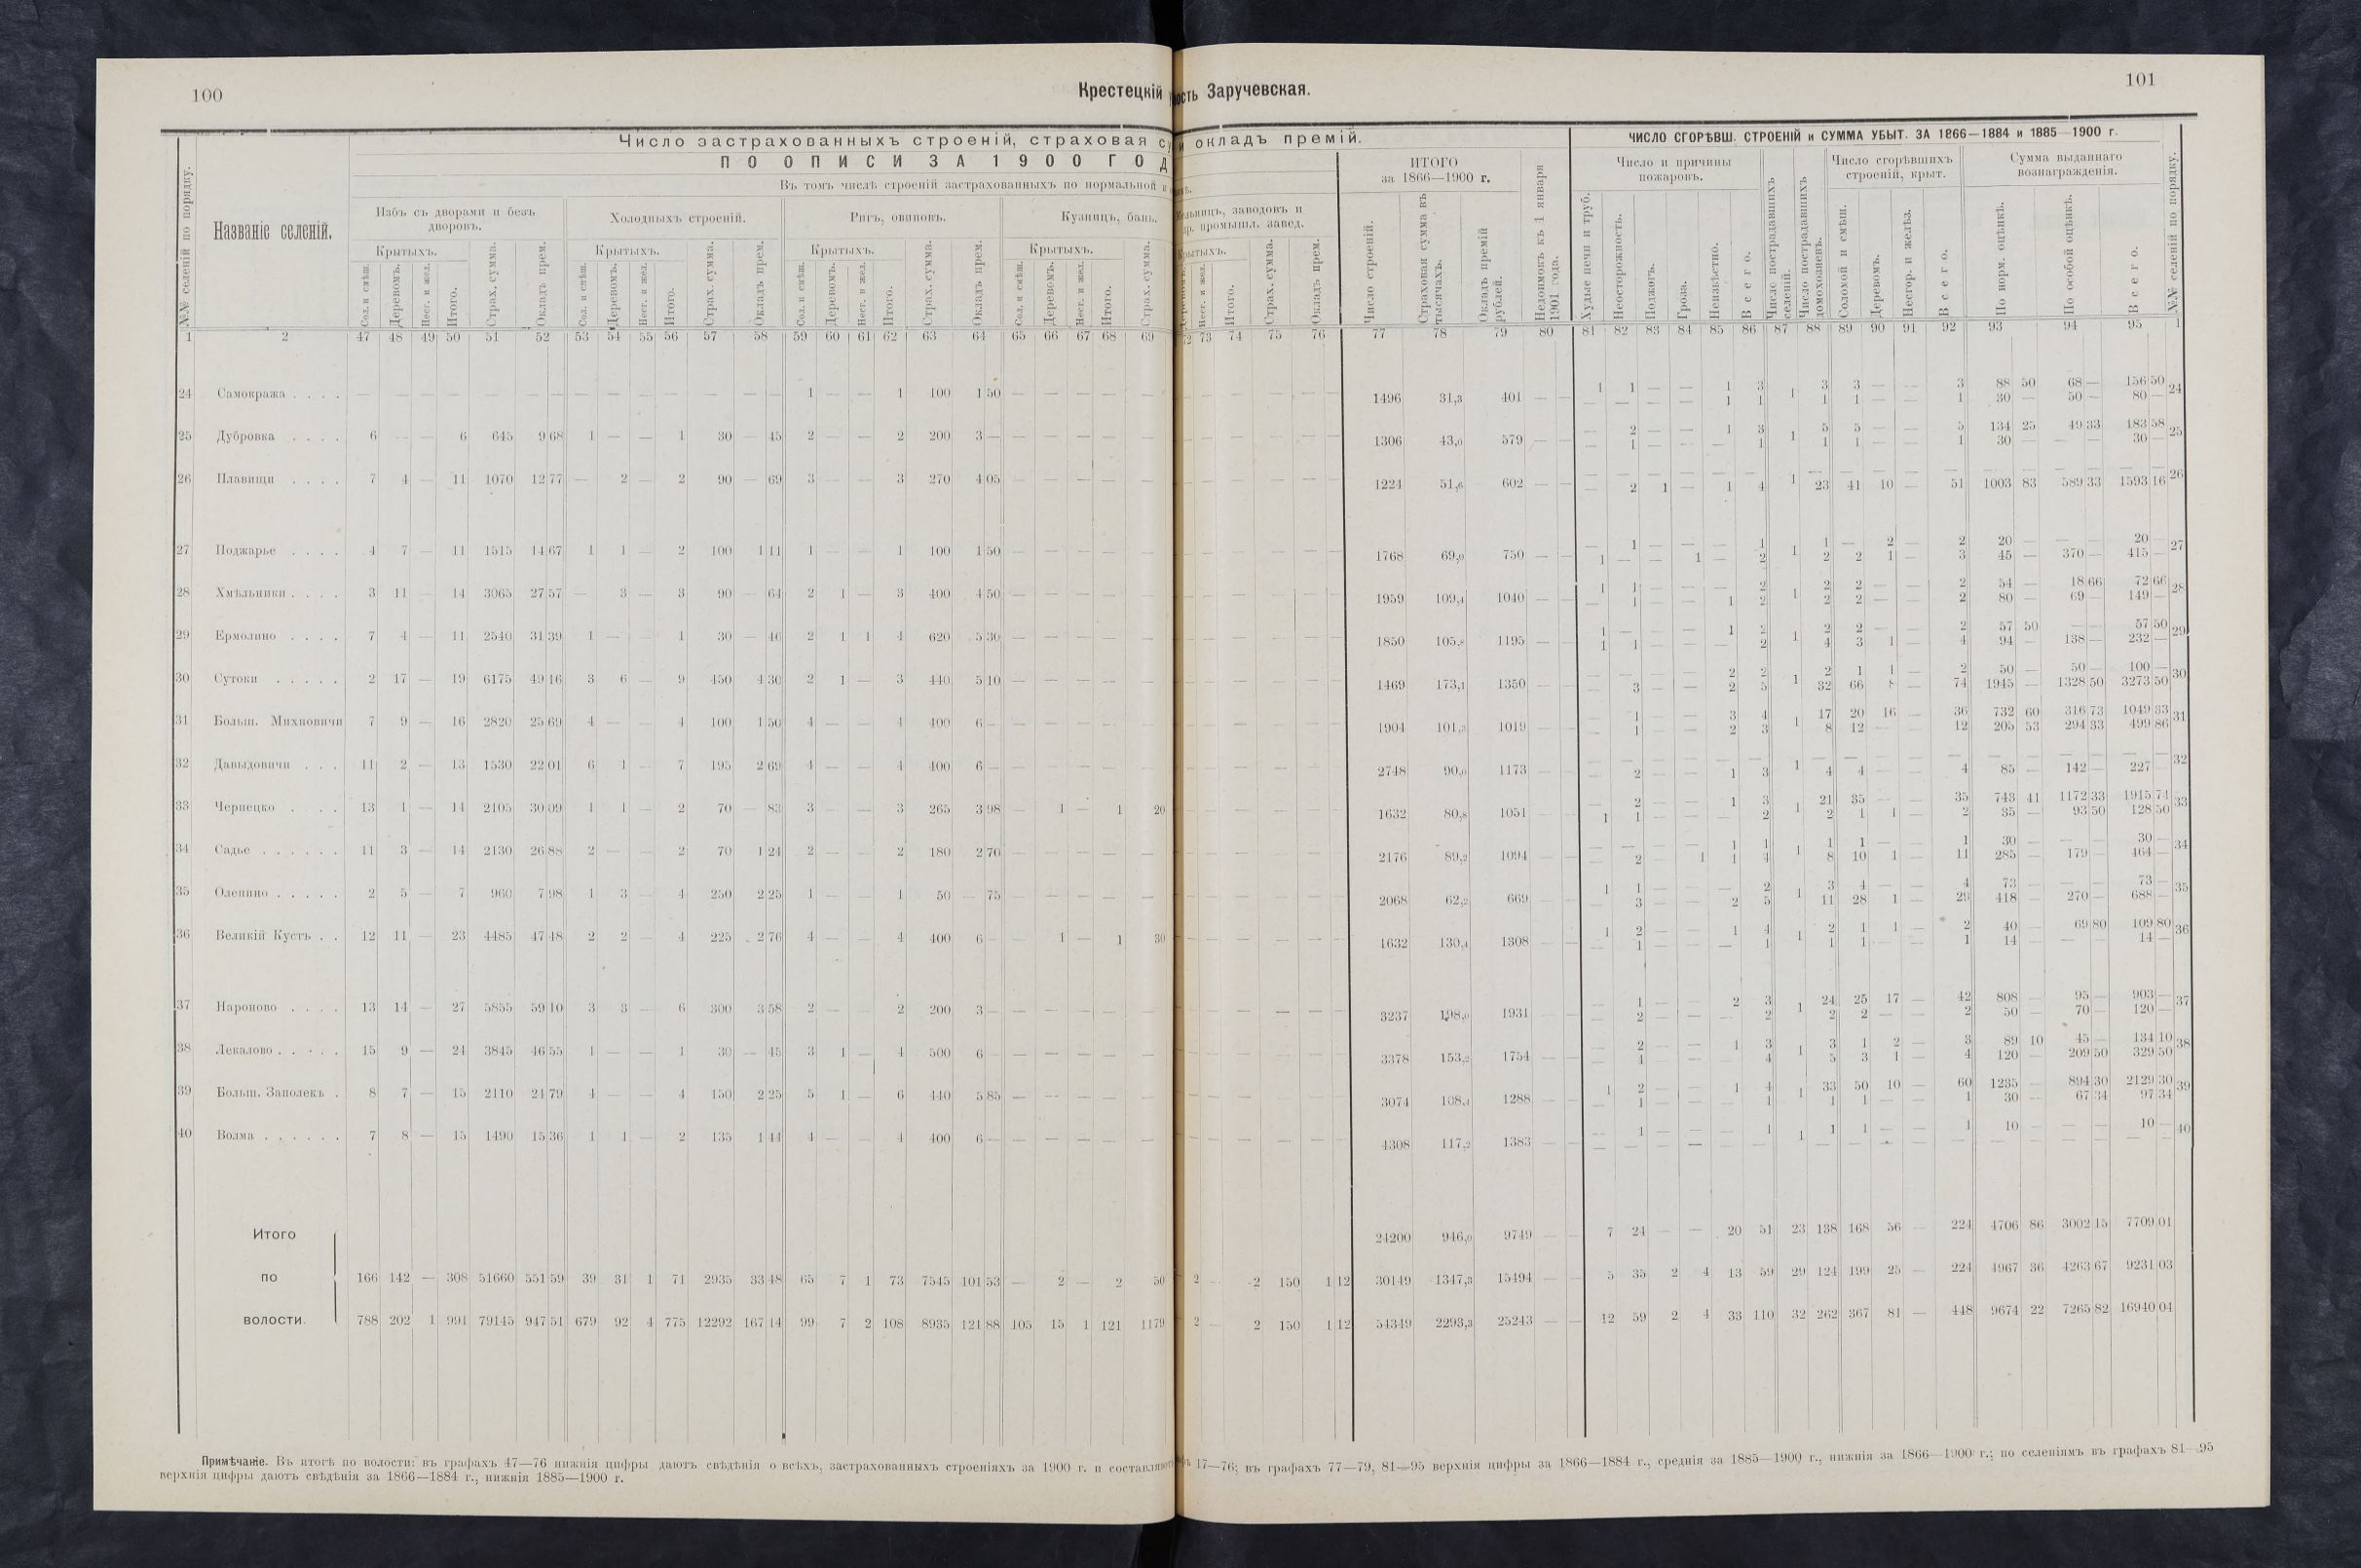 100
Крестецкій
ость Заручевская.
101
Число застрахованныхъ строеній, страховая
и окладъ премій.
ПО ОПИСИ ЗА 1900 ГОД
Въ томъ числѣ строеній застрахованныхъ по нормальной
Избъ съ дворами и безъ дворовъ.
Холодныхъ строеній.
Ригъ, овиновъ.
Кузницъ, бань,
мельницъ, заводовъ и др. промышл. завед.
ИТОГО за 1866—1900 г.
ЧИСЛО СГОРѢВШ. СТРОЕНІЙ и СУММА УБЫТ. ЗА 1866—1884 и 1885—1900 г.
Число и причины пожаровъ.
Число сгорѣвшихъ строеній, крыт.
Сумма выданнаго вознагражденія.
№№ селеній по порядку.
Названіе селеній.
Крытыхъ. Сол. и смѣш. Деревомъ. Несг. и жел. Итого. Страх. сумма. Окладъ прем.
Крытыхъ. Сол. и смѣш. Деревомъ. Несг. и жел. Итого. Страх. сумма. Окладъ прем.
Крытыхъ. Сол. и смѣш. Деревомъ. Несг. и жел. Итого. Страх. сумма. Окладъ прем.
Крытыхъ. Сол. и смѣш. Деревомъ. Несг. и жел. Итого. Страх. сумма.
Несг. и жел. Итого. Страх. сумма. Окладъ прем.
Число строеній. Страховая сумма въ тысячахъ. Окладъ премій рублей. Недоимокъ къ 1 января 1901 года.
Худые печи и труб. Неосторожность. Поджогъ. Гроза. Неизвѣстно. Всего. Число пострадавшихъ селеній. Число пострадавшихъ домохозяевъ. Соломой и смѣш. Деревомъ. Несгор. и желѣз. Всего. По норм. оцѣнкѣ. По особой оцѣнкѣ. Всего. №№ селеній по порядку.
1 2 47 48 49 50 51 52 53 54 55 56 57 58 59 60 61 62 63 64 65 66 67 68 69 72 73 74 75 76 77 78 79 80 81 82 83 84 85 86 87 88 89 90 91 92 93 94 95 1
24 Самокража . . . . — — — — — — — — — — — — 1 — — 1 100 1 50 — — — — — 1496 31,3 401 — — 1 1 — — 1 3 1 3 3 — — 3 88 50 68 — 156 50 24
— — — — 1 1 1 1 — — 1 30 — 50 — 80 —
25 Дубровка . . . . 6 — — 6 645 9 68 1 — — 1 30 — 45 2 — — 2 200 3 — — — — — — 1306 43,0 579 — — — 2 — — 1 3 1 5 5 — — 5 134 25 49 33 183 58 25
— 1 — — — 1 1 1 — — 1 30 — — — 30 —
26 Плавищи . . . . 7 4 — 11 1070 12 77 — 2 — 2 90 — 69 3 — — 3 270 4 05 — — — — — 1224 51,6 602 — — — — — — — — 1 — — — — — — — — — — — 26
— 2 1 — 1 4 23 41 10 — 51 1003 83 589 33 1593 16
27 Поджарье . . . . 4 7 — 11 1515 14 67 1 1 — 2 100 1 11 1 — — 1 100 1 50 — — — — — 1768 69,0 750 — — — 1 — — — 1 1 1 — 2 — 2 20 — — — 20 — 27
1 — — 1 — 2 2 2 1 — 3 45 — 370 — 415 —
28 Хмѣльники . . . . 3 11 — 14 3065 27 57 — 3 — 3 90 — 64 2 1 — 3 400 4 50 — — — — — 1959 109,4 1040 — — 1 1 — — — 2 1 2 2 — — 2 54 — 18 66 72 66 28
— 1 — — 1 2 2 2 — — 2 80 — 69 — 149 —
29 Ермолино . . . . 7 4 — 11 2540 31 39 1 — — 1 30 — 46 2 1 1 4 620 5 30 — — — — — 1850 105,8 1195 — — 1 — — — 1 2 1 2 2 — — 2 57 50 — — 57 50 29
1 1 — — — 2 4 3 1 — 4 94 — 138 — 232 —
30 Сутоки . . . . . 2 17 — 19 6175 49 16 3 6 — 9 450 4 30 2 1 — 3 440 5 10 — — — — — 1469 173,1 1350 — — — — — — 2 2 1 2 1 1 — 2 50 — 50 — 100 — 30
— 3 — — 2 5 32 66 8 — 74 1945 — 1328 50 3273 50
31 Больш. Михновичи 7 9 — 16 2820 25 69 4 — — 4 100 1 50 4 — — 4 400 6 — — — — — — 1904 101,3 1019 — — — 1 — — 3 4 1 17 20 16 — 36 732 60 316 73 1049 33 31
— 1 — — 2 3 8 12 — — 12 205 53 294 33 499 86
32 Давыдовичи . . . 11 2 — 13 1530 22 01 6 1 — 7 195 2 69 4 — — 4 400 6 — — — — — — 2748 90,0 1173 — — — — — — — — 1 — — — — — — — — — — — 32
— 2 — — 1 3 4 4 — — 4 85 — 142 — 227 —
33 Чернецко . . . 13 1 — 14 2105 30 09 1 1 — 2 70 — 83 3 — — 3 265 3 98 — 1 — 1 20 1632 80,8 1051 — — — 2 — — 1 3 1 21 35 — — 35 743 41 1172 33 1915 74 33
1 1 — — — 2 2 1 1 — 2 35 — 93 50 128 50
34 Садье . . . . . . 11 3 — 14 2130 26 88 2 — — 2 70 1 24 2 — — 2 180 2 70 — — — — — 2176 89,2 1094 — — — — — — 1 1 1 1 1 — — 1 30 — — — 30 — 34
— 2 — 1 1 4 8 10 1 — 11 285 — 179 — 464 —
35 Оленино . . . . . 2 5 — 7 960 7 98 1 3 — 4 250 2 25 1 — — 1 50 — 75 — — — — — 2068 62,2 669 — — 1 1 — — — 2 1 3 4 — — 4 73 — — — 73 — 35
— 3 — — 2 5 11 28 1 — 29 418 — 270 — 688 —
36 Великій Кустъ . . 12 11 — 23 4485 47 48 2 2 — 4 225 2 76 4 — — 4 400 6 — — 1 — 1 30 1632 130,4 1308 — — 1 2 — — 1 4 1 2 1 1 — 2 40 — 69 80 109 80 36
— 1 — — — 1 1 1 — — 1 14 — — 14 —
37 Нароново . . . . 13 14 — 27 5855 59 10 3 3 — 6 300 3 58 2 — — 2 200 3 — — — — — — 3237 198,0 1931 — — — 1 — — 2 3 1 24 25 17 — 42 808 — 95 — 903 — 37
— 2 — — — 2 2 2 — — 2 50 — 70 — 120 —
38 Лекалово . . . . . 15 9 — 24 3845 46 55 1 — — 1 30 — 45 3 1 — 4 500 6 — — — — — — 3378 153,2 1754 — — — 2 — — 1 3 1 3 1 2 — 3 89 10 45 — 134 10 38
— 1 — — — 4 5 3 1 — 4 120 — 209 50 329 50
39 Больш. Заполекъ . 8 7 — 15 2110 21 79 4 — — 4 150 2 25 5 1 — 6 440 5 85 — — — — — 3074 108,4 1288 — — 1 2 — — 1 4 1 33 50 10 — 60 1235 — 894 30 2129 30 39
— 1 — — — 1 1 1 — — 1 30 — 67 34 97 34
40 Волма . . . . . . 7 8 — 15 1490 15 36 1 1 — 2 135 1 44 4 — — 4 400 6 — — — — — — 4308 117,2 1383 — — — 1 — — — 1 1 1 1 — — 1 10 — — — 10 — 40
Итого 24200 946,0 9749 — — 7 24 — — 20 51 23 138 168 56 — 224 4706 86 3002 15 7709 01
по 166 142 — 308 51660 551 59 39 31 1 71 2935 33 48 65 7 1 73 7545 101 53 — 2 — 2 50 2 — 2 150 1 12 30149 1347,3 15494 — — 5 35 2 4 13 59 29 124 199 25 — 224 4967 36 4263 67 9231 03
волости. 788 202 1 991 79145 947 51 679 92 4 775 12292 167 14 99 7 2 108 8935 121 88 105 15 1 121 1179 2 — 2 150 1 12 54349 2293,3 25243 — — 12 59 2 4 33 110 32 262 367 81 — 448 9674 22 7265 82 16940 04
Примѣчаніе. Въ итогѣ по волости: въ графахъ 47—76 нижнія цифры даютъ свѣдѣнія о всѣхъ, застрахованныхъ строеніяхъ за 1900 г. и составляютъ 17—76; въ графахъ 77—79, 81—95 верхнія цифры за 1866—1884 г., среднія за 1885—1900 г., нижнія за 1866—1900 г.; по селеніямъ въ графахъ 81—95
верхнія цифры даютъ свѣдѣнія за 1866—1884 г., нижнія 1885—1900 г.